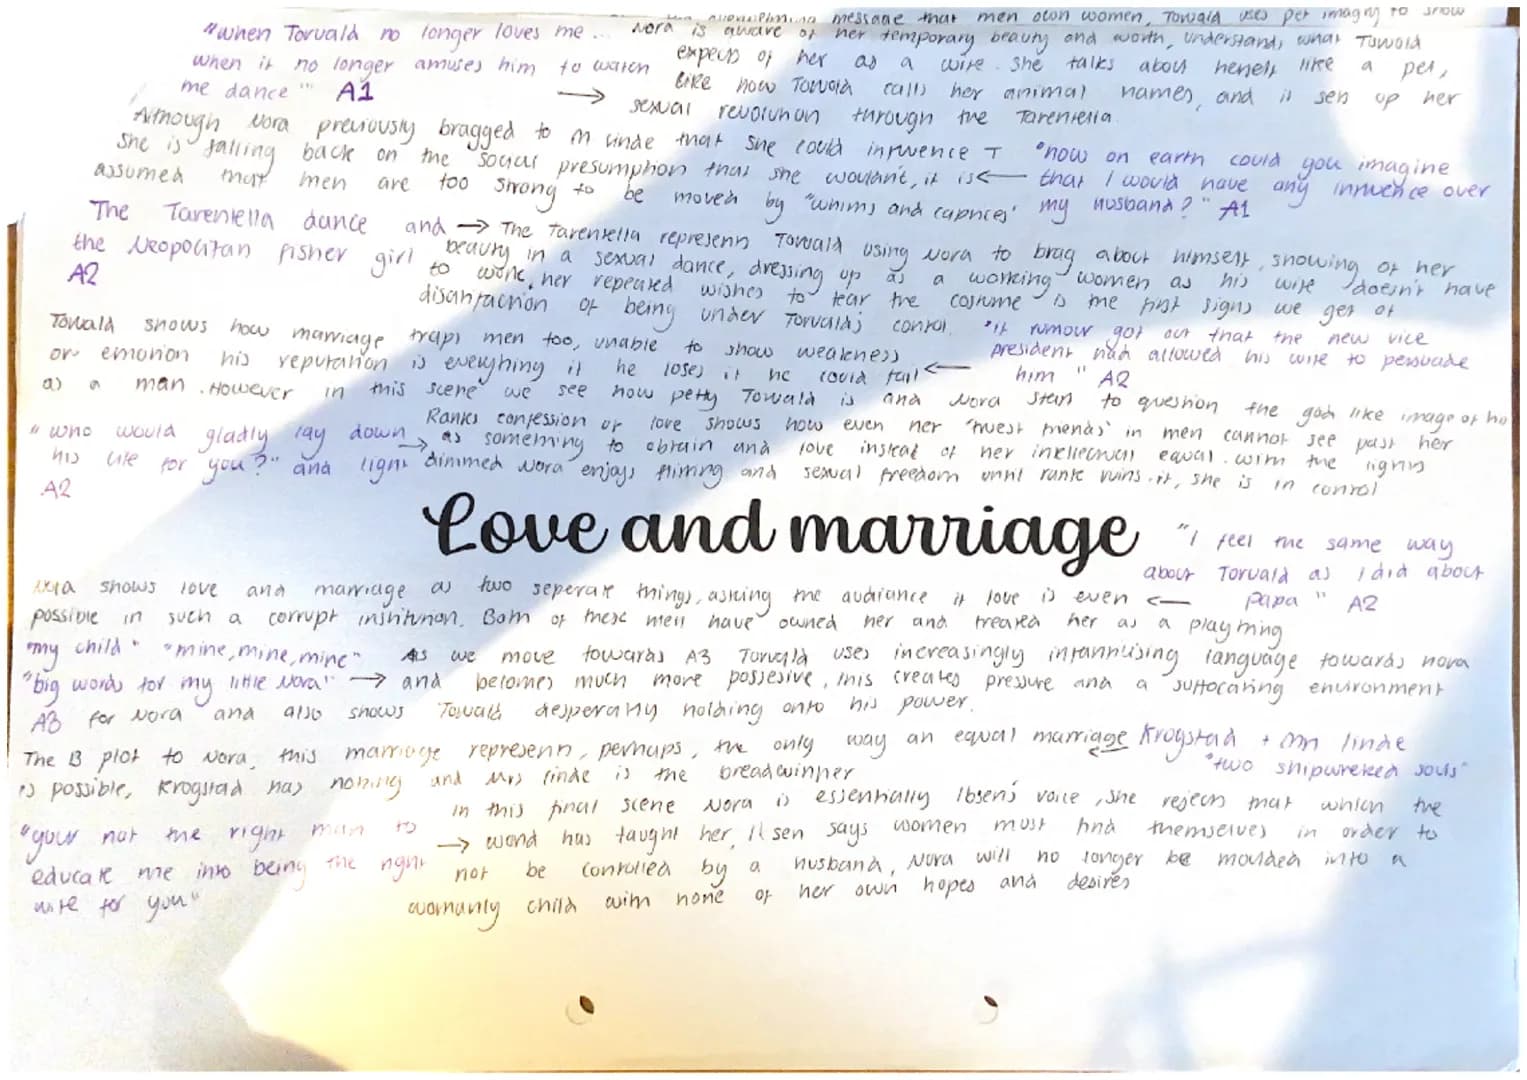 message that men own women, Torvald uses pet imagry to show
"when Torvald no longer loves me... Nora is aware of her temporary beauty and worth, understands what Torvald
when it no longer amuses him to watch expects of her as a wife. She talks about herself like a pet,
me dance" A1 → like how Torvald calls her animal names, and it sets up her
sexual revolution through the Tarentella.
Although Nora previously bragged to M Linde that she could influence T "how on earth could you imagine
She is falling back on the social presumption that she wouldnt, it is ← that I would have any influence over
assumed that men are too strong to be moved by "whims and caprices' my husband?" A1
The Tarentella dance and → The tarentella represents Torvald using Nora to brag about himself, showing of her
the Neopolitan fisher girl beauty in a sexual dance, dressing up as a working women as his wife doesn't have
A2 to work, her repeated wishes to tear the costume is the first signs we get of
disantfaction of being under Torvalds control.
Torvald shows how marriage traps men too, unable to show weakness "if rumour got out that the new vice
or emotion his reputation is everything if he loses it he could fall ← president had allowed his wife to persuade
as a man. However in this scene we see how petty Torvald is and Nora start to question the god like image of his
him" A2
Ranks confession of love shows how even her 'truest friends' in men cannot see past her
"who would gladly lay down → as something to obtain and love instead of her intellectual equal. with the lights
his life for you?" and light dimmed Nora enjoys flirting and sexual freedom until rank ruins it, she is in control
A2
Love and marriage
"I feel the same way
about Torvald as I did about
Nora shows love and marriage as two seperate things, asking the audiance if love is even ← papa" A2
possible in such a corrupt institution. Both of these men have owned her and treated her as a plaything
"my child" "mine, mine, mine" As we move towards A3 Torvald uses increasingly infantilising language towards nora
"big words for my little Nora" → and becomes much more possesive, this creates pressure and a suffocating environment
A3 for Nora and also shows Torvald desperatly holding onto his power.
The B plot to Nora, this marriage represents, perhaps, the only way an equal marriage ← Krogstad + Mrs linde
is possible, Krogstad has nothing and Mrs linde is the breadwinner "two shipwreked souls"
In this final scene Nora is essentially Ibsens voice, she rejects that which the
"your not the right man to → world has taught her, Ibsen says women must find themselves in order to
educate me into being the right not be controlled by a husband, Nora will no longer be moulded into a
wife for you" womanly child with none of her own hopes and desires